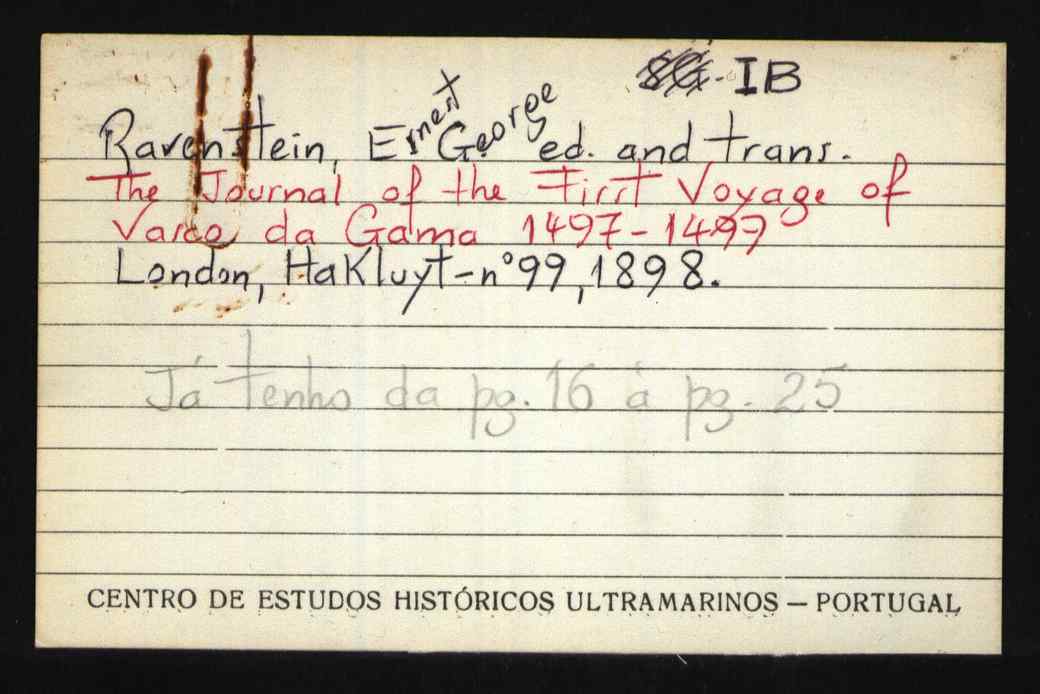 IB
Ravenstein, Ernest George ed. and trans.
The Journal of the First Voyage of
Vasco da Gama 1497-1499
London, Hakluyt-nº99, 1898.
Já tenho da pg. 16 à pg. 25
CENTRO DE ESTUDOS HISTÓRICOS ULTRAMARINOS — PORTUGAL